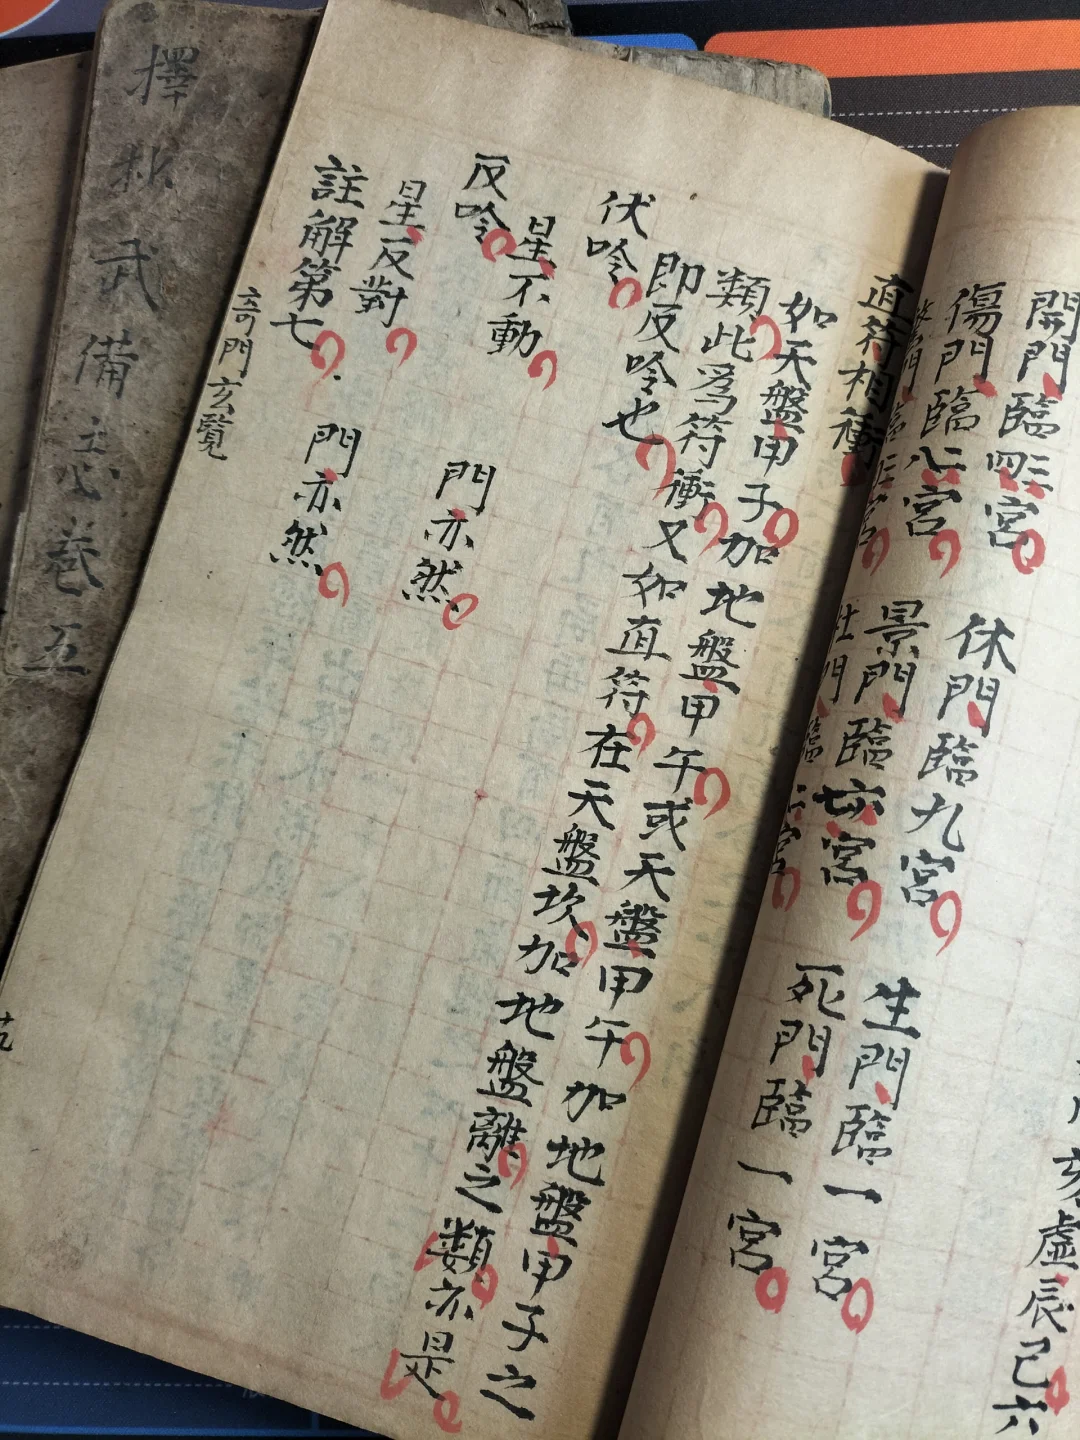 開門臨四三宮 休門臨九宮 生門臨一宮
傷門臨八二宮 景門臨七六宮 死門臨一宮
直符相衝
如天盤甲子加地盤甲午或天盤甲午加地盤甲子之
類此為符衝又如直符在天盤坎加地盤離之類亦是
即反吟也
伏吟
星不動 門亦然
反吟
星反對 門亦然
註解第七
奇門玄覽
武備志卷五
虛辰己六